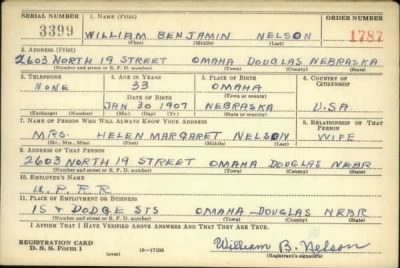 SERIAL NUMBER 1. NAME (Print) ORDER NUMBER
3399 WILLIAM BENJAMIN NELSON 1787
(First) (Middle) (Last)
2. ADDRESS (Print)
2603 NORTH 19 STREET OMAHA DOUGLAS NEBRASKA
(Number and street or R. F. D. number) (Town) (County) (State)
3. TELEPHONE 4. AGE IN YEARS 5. PLACE OF BIRTH 6. COUNTRY OF CITIZENSHIP
NONE 33 OMAHA
DATE OF BIRTH (Town or county)
JAN 30 1907 NEBRASKA U.S.A.
(Exchange) (Number) (Mo.) (Day) (Yr.) (State or country)
7. NAME OF PERSON WHO WILL ALWAYS KNOW YOUR ADDRESS 8. RELATIONSHIP OF THAT PERSON
MRS. HELEN MARGARET NELSON WIFE
(Mr., Mrs., Miss) (First) (Middle) (Last)
9. ADDRESS OF THAT PERSON
2603 NORTH 19 STREET OMAHA DOUGLAS NEBR
(Number and street or R. F. D. number) (Town) (County) (State)
10. EMPLOYER'S NAME
U.P.RR
11. PLACE OF EMPLOYMENT OR BUSINESS
15 & DODGE STS OMAHA-DOUGLAS NEBR
(Number and street or R. F. D. number) (Town) (County) (State)
I AFFIRM THAT I HAVE VERIFIED ABOVE ANSWERS AND THAT THEY ARE TRUE.
REGISTRATION CARD
D. S. S. Form 1 (over) William B. Nelson
(Registrant's signature)